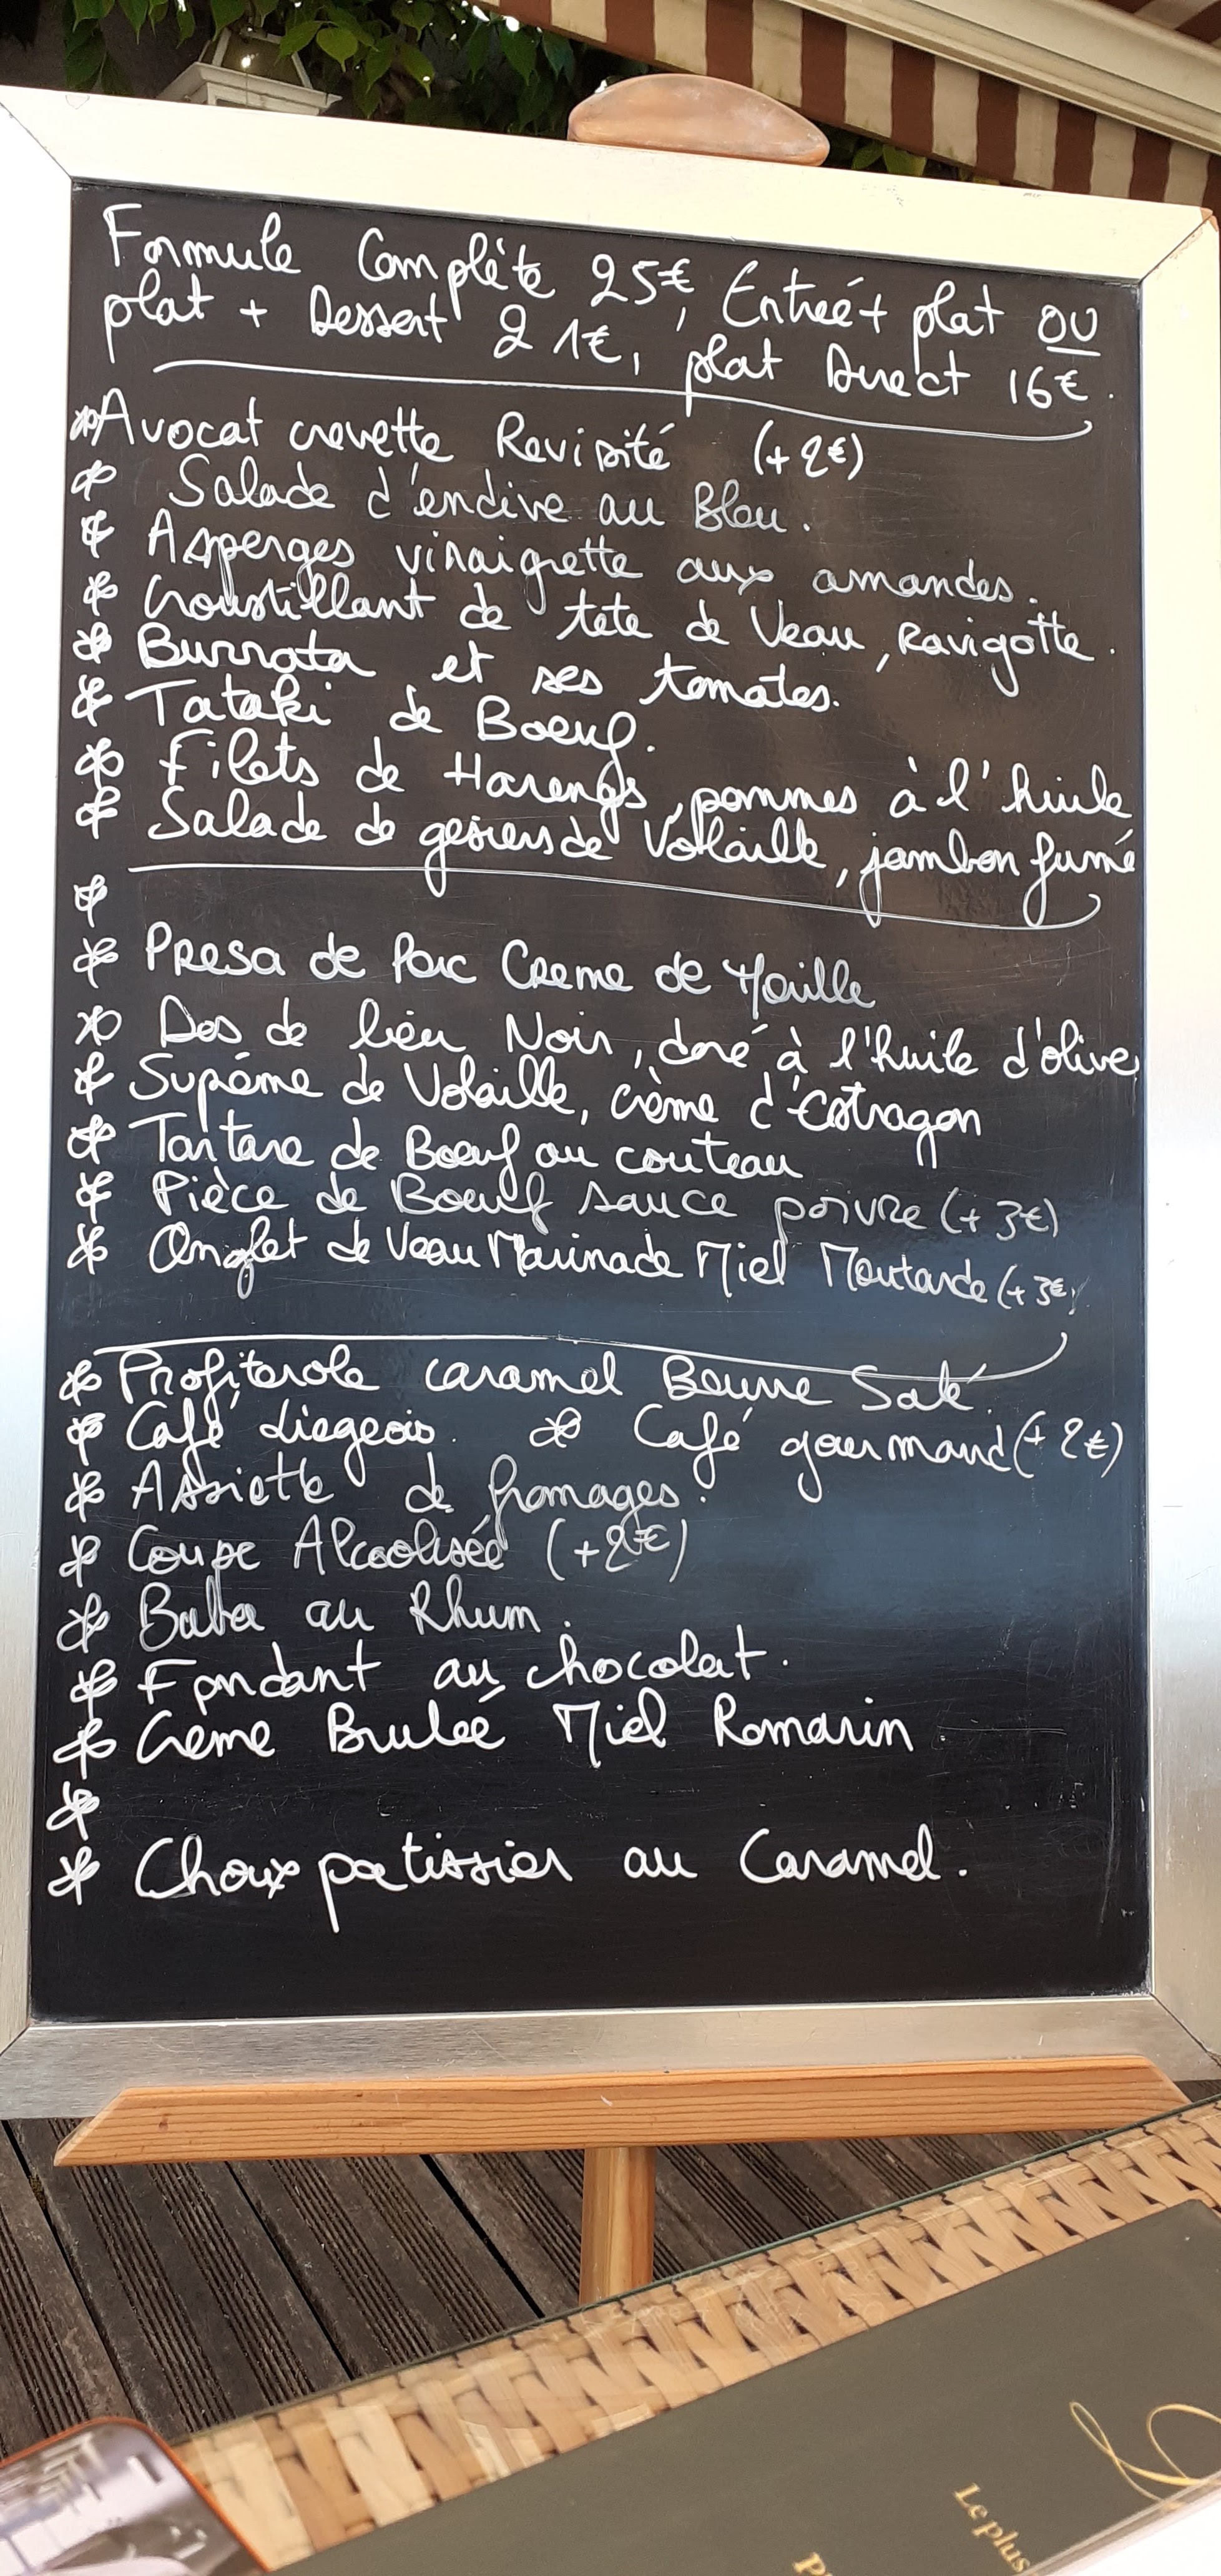 Formule Complète 25€, Entrée + plat OU
plat + Dessert 21€, plat Direct 16€.
Avocat crevette Revisité (+2€)
Salade d'endive au Bleu.
Asperges vinaigrette aux amandes.
Croustillant de tete de Veau, Ravigotte.
Burrata et ses tomates.
Tataki de Boeuf.
Filets de Harengs, pommes à l'huile
Salade de gesiers de Volaille, jambon fumé
Presa de Porc Creme de Morille
Dos de lieu Noir, doré à l'huile d'olive
Supême de Volaille, crème d'Estragon
Tartare de Boeuf au couteau
Pièce de Boeuf sauce poivre (+3€)
Onglet de Veau Marinade Miel Moutarde (+3€)
Profiterole caramel Beurre Salé.
Café Liegeois. * Café gourmand (+2€)
Assiette de fromages.
Coupe Alcoolisée (+2€)
Baba au Rhum.
Fondant au chocolat.
Creme Brulée Miel Romarin
Choux patissier au Caramel.
Le plus